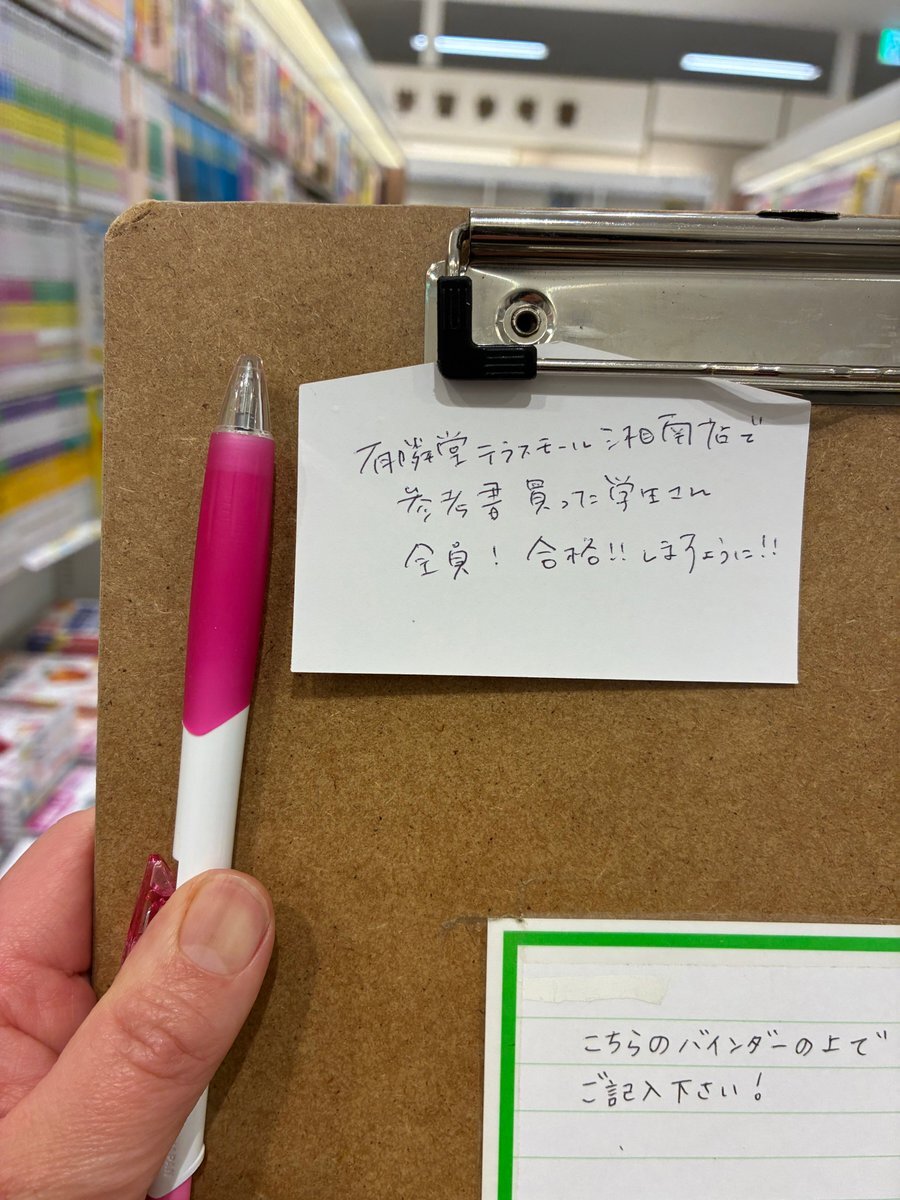 有隣堂テラスモール湘南店で
参考書買った学生さん
全員! 合格!! しますように!!
こちらのバインダーの上で
ご記入下さい!